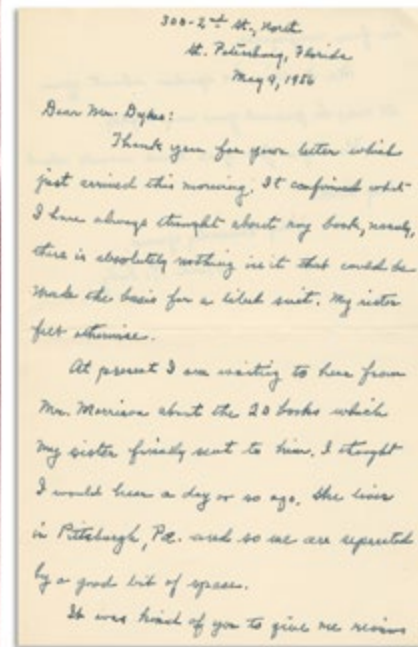 300-2nd St., North
St. Petersburg, Florida
May 9, 1956
Dear Mr. Dykes:
Thank you for your letter which
just arrived this morning. It confirmed what
I have always thought about my book, namely,
there is absolutely nothing in it that could be
made the basis for a libel suit. My sister
felt otherwise.
At present I am waiting to hear from
Mr. Morrison about the 20 books which
my sister finally sent to him. I thought
I would hear a day or so ago. She lives
in Pittsburgh, Pa. and so we are separated
by a good bit of space.
It was kind of you to give me